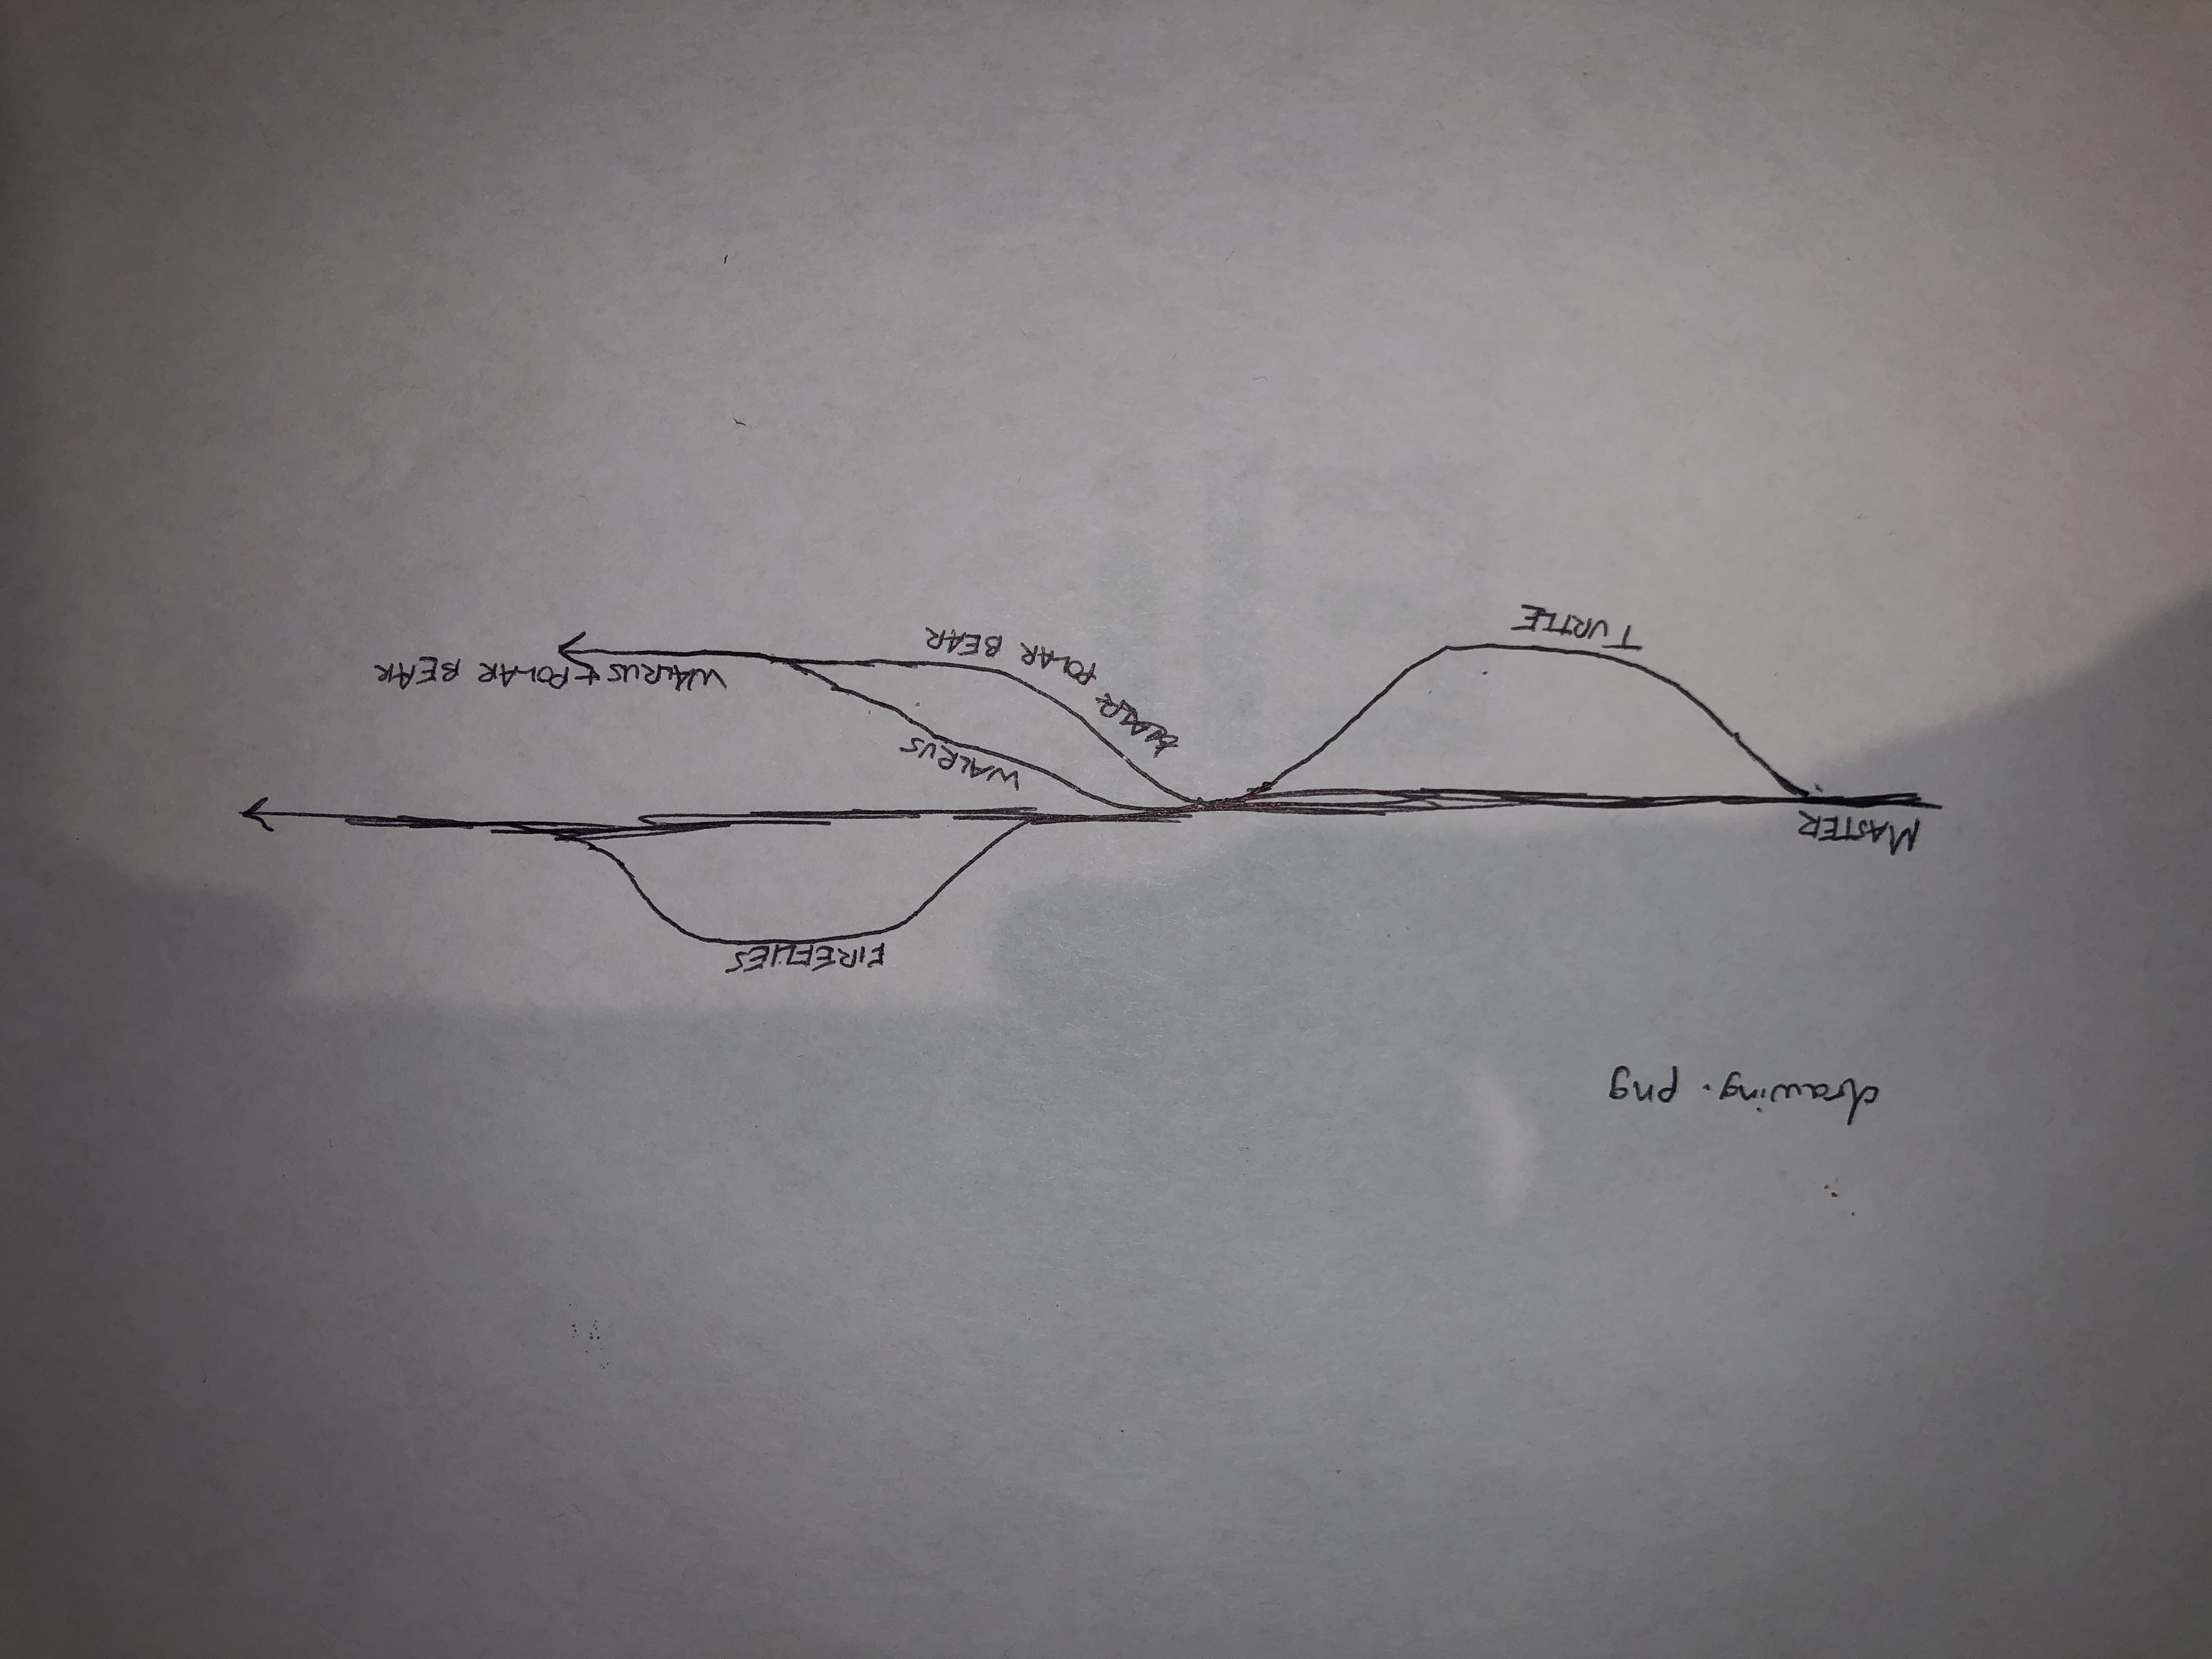 drawing.png
FIREFLIES
MASTER
WALRUS
POLAR BEAR
WALRUS + POLAR BEAR
TURTLE